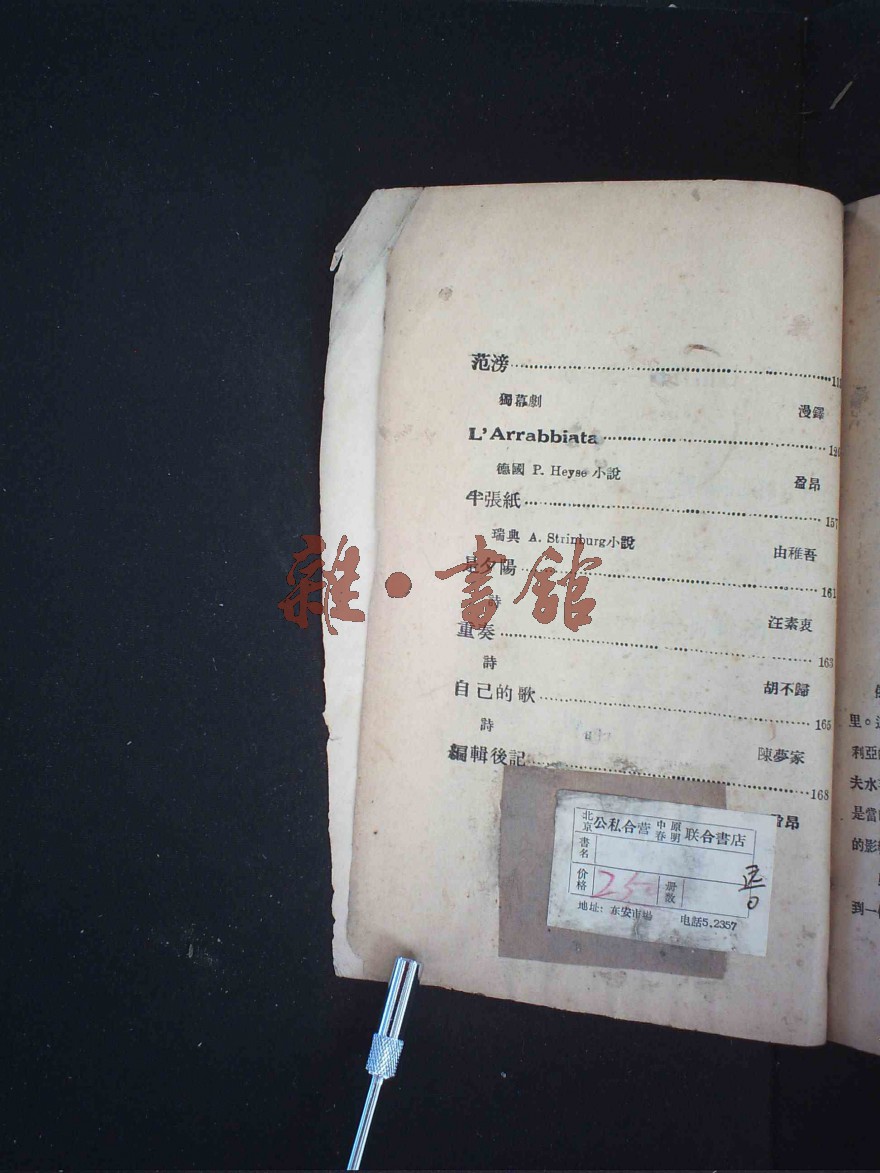 范滂
獨幕劇 漫鐸
L'Arrabbiata
德國 P. Heyse 小說 盈昂
半張紙 157
瑞典 A. Strinburg小說 由稚吾
是夕陽 161
詩 汪素衷
重奏 163
詩 胡不歸
自己的歌 165
詩 陳夢家
編輯後記 168
盈昂
北京公私合营中原春明联合書店
書名
价格 250 册数
地址: 东安市場 电話5.2357
雜·書館
里。
利亞
夫水
是當
的影
到一